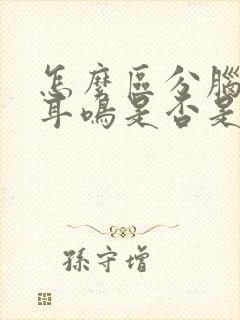 怎麼區分腦
耳鳴是否是
孫守增